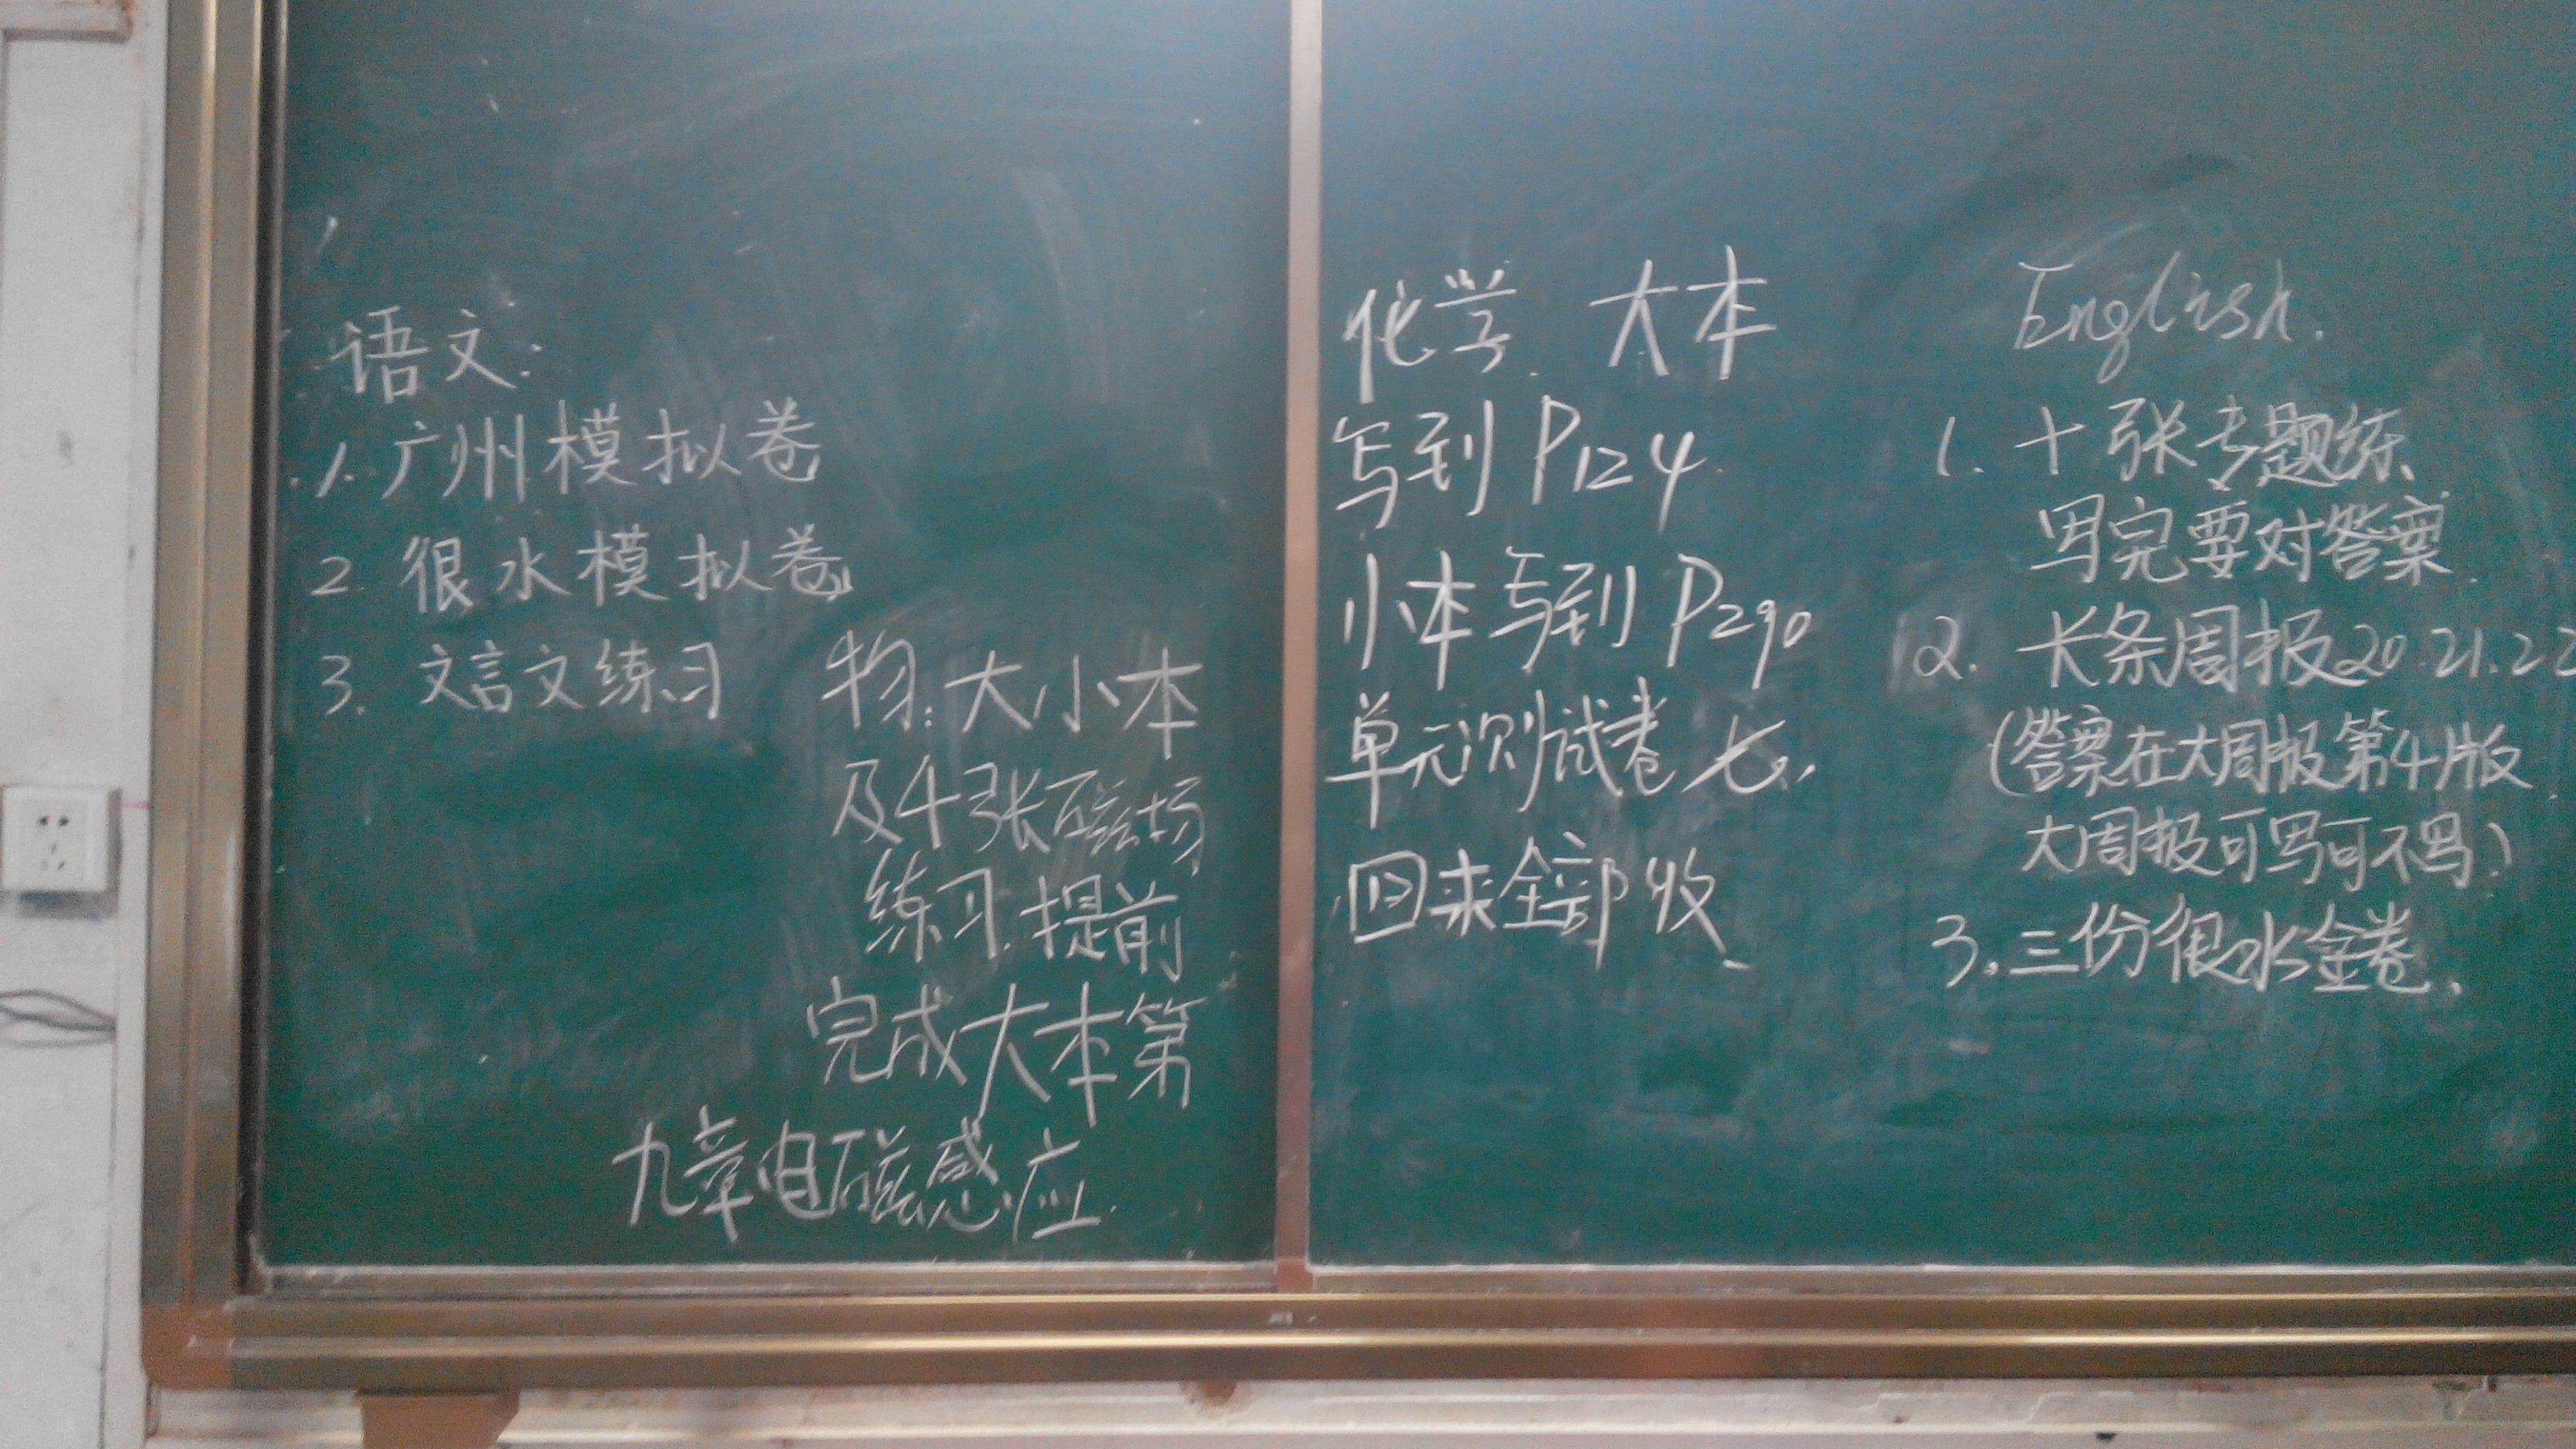 语文:
1. 广州模拟卷
2. 很水模拟卷
3. 文言文练习
物: 大小本
及4张磁场
练习. 提前
完成大本第
九章电磁感应.
化学. 大本
写到P124
小本写到P290
单元测试卷七.
回来全部收
English.
1. 十张专题练
写完要对答案.
2. 长条周报20.21.22
(答案在大周报第4版
大周报可写可不写)
3. 三份很水金卷.